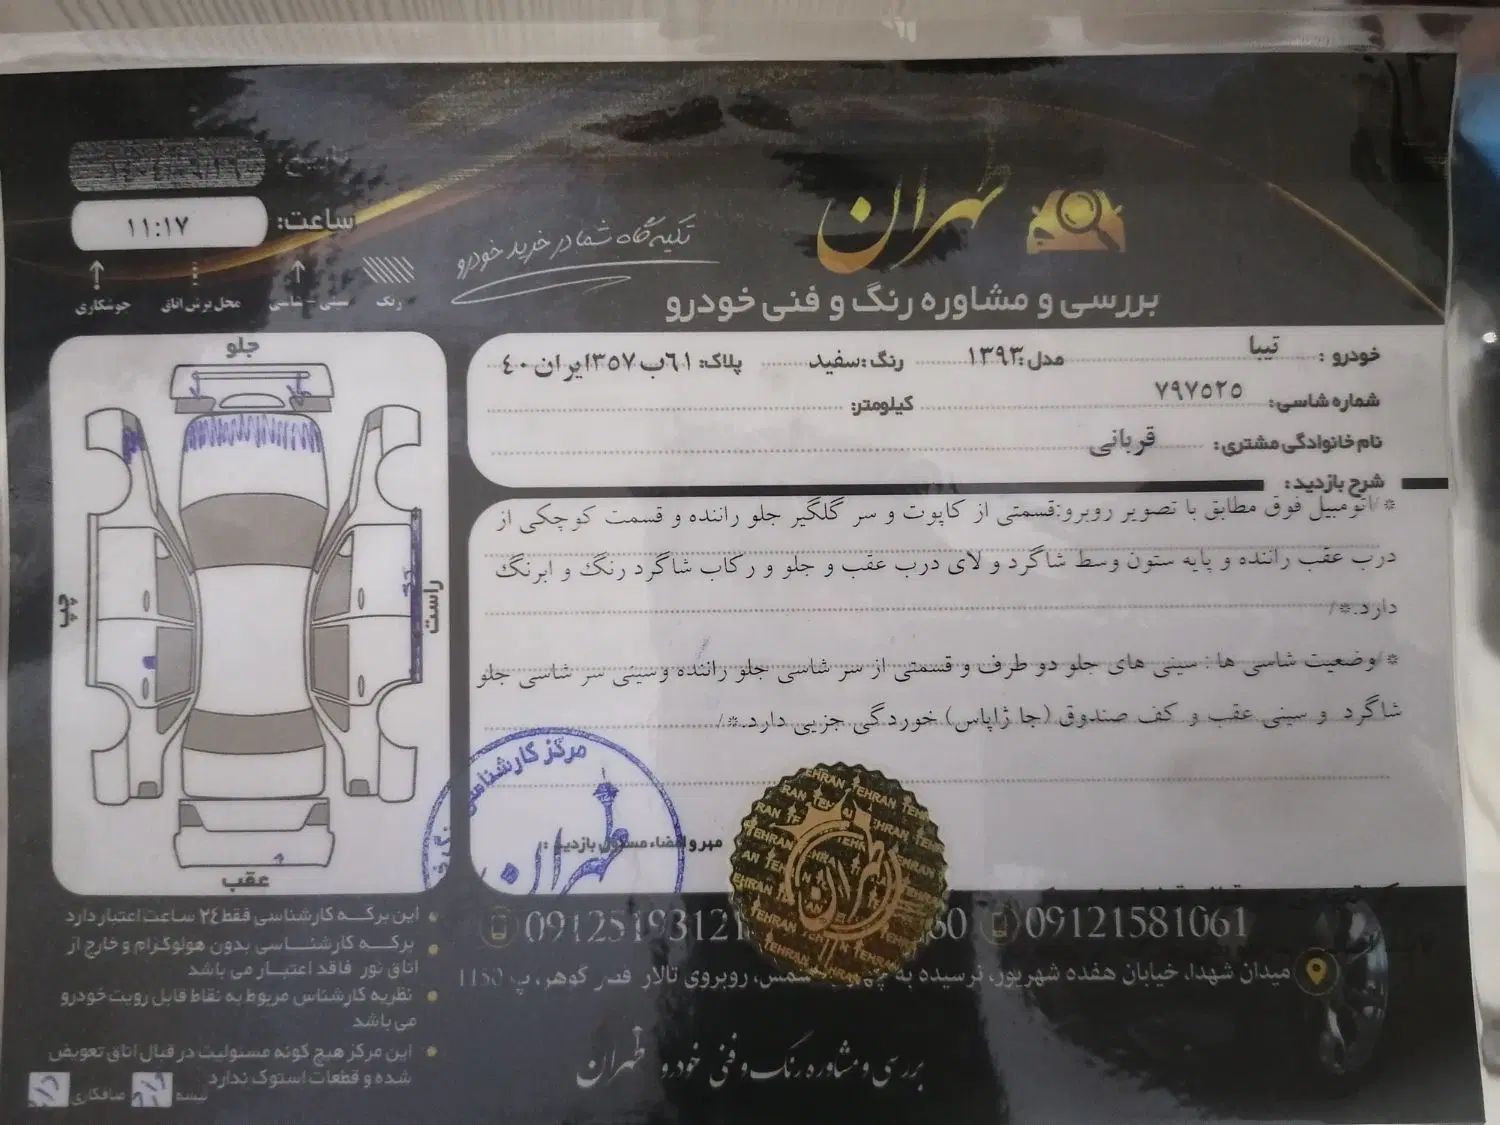 طهران
تکیه گاه شما در خرید خودرو
بررسی و مشاوره رنگ و فنی خودرو
ساعت: ۱۱:۱۷
رنگ
سینی - شاسی
محل برش اتاق
جوشکاری
خودرو : تیبا مدل: ۱۳۹۳ رنگ: سفید پلاک: ۶۱ب۳۵۷ایران۴۰
شماره شاسی: ۷۹۷۵۲۵ کیلومتر:
نام خانوادگی مشتری: قربانی
شرح بازدید:
*/اتومبیل فوق مطابق با تصویر روبرو:قسمتی از کاپوت و سر گلگیر جلو راننده و قسمت کوچکی از
درب عقب راننده و پایه ستون وسط شاگرد و لای درب عقب و جلو و رکاب شاگرد رنگ و ابرنگ
دارد.*/
*/وضعیت شاسی ها: سینی های جلو دو طرف و قسمتی از سر شاسی جلو راننده وسینی سر شاسی جلو
شاگرد و سینی عقب و کف صندوق (جا زاپاس) خوردگی جزیی دارد.*/
مهر و امضاء مسئول بازدید :
جلو
چپ
راست
عقب
مرکز کارشناسی
طهران
TEHRAN
طهران
این برگه کارشناسی فقط ۲۴ ساعت اعتبار دارد
برگه کارشناسی بدون هولوگرام و خارج از
اتاق نور فاقد اعتبار می باشد
نظریه کارشناس مربوط به نقاط قابل رویت خودرو
می باشد
این مرکز هیچ گونه مسئولیت در قبال اتاق تعویض
شده و قطعات استوک ندارد
صافکاری
09121581061
0912519312
میدان شهدا، خیابان هفده شهریور، نرسیده به شمس، روبروی تالار قصر گوهر، پ 1150
بررسی و مشاوره رنگ و فنی خودرو طهران